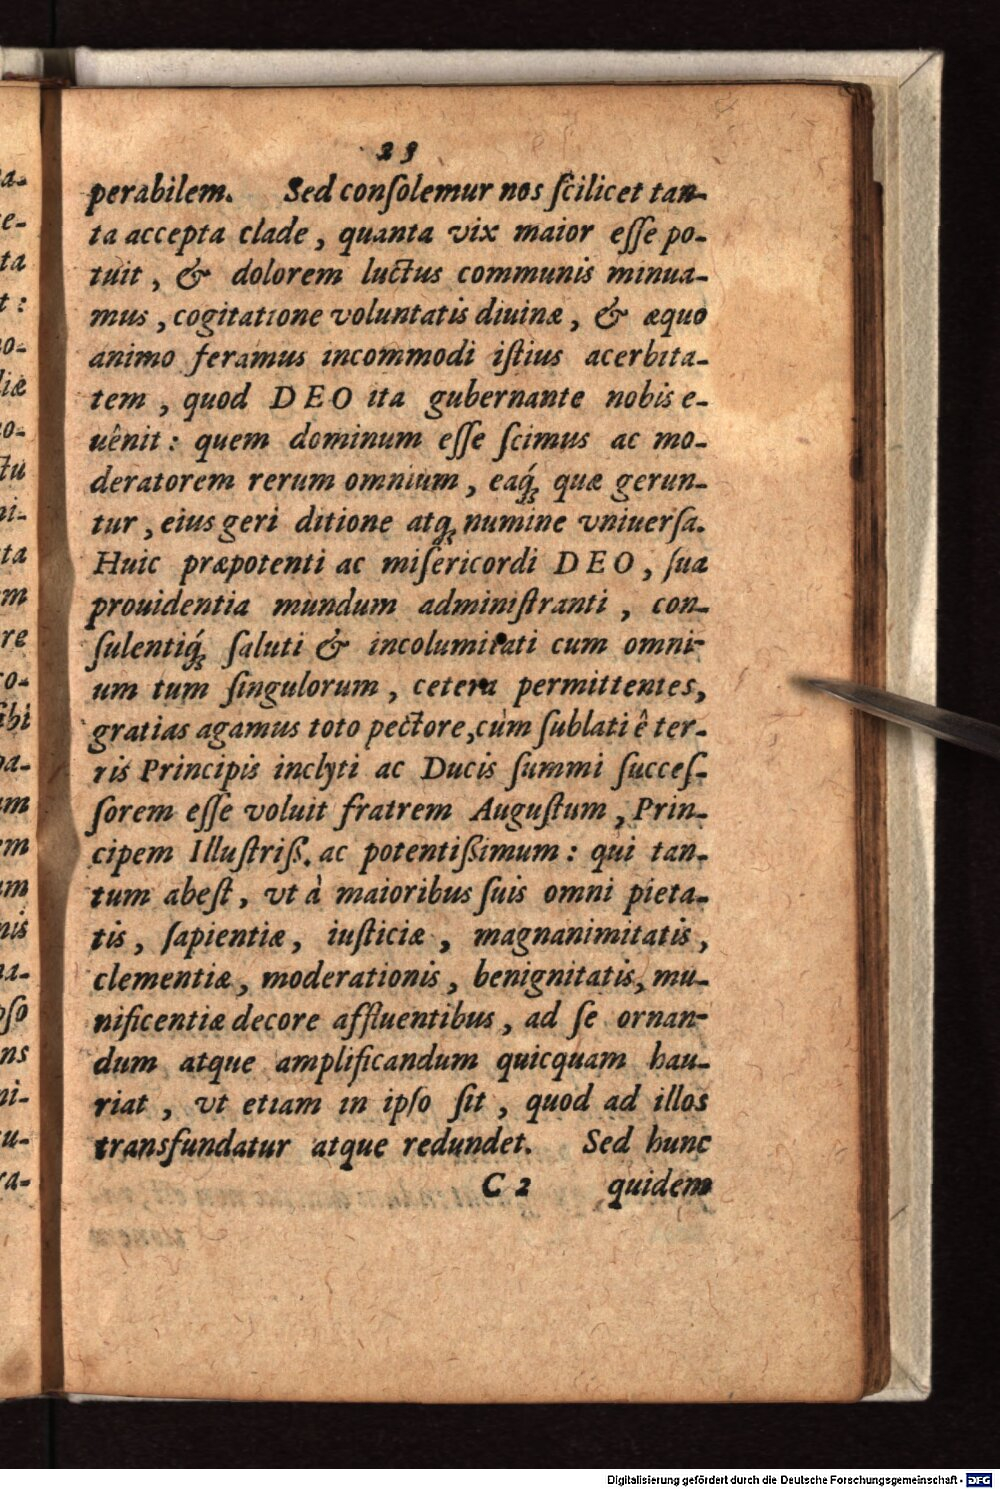 23
perabilem. Sed conſolemur nos ſcilicet tan-
ta accepta clade, quanta vix maior eſſe po-
tuit, & dolorem luctus communis minua-
mus, cogitatione voluntatis diuinæ, & æquo
animo feramus incommodi iſtius acerbita-
tem, quod DEO ita gubernante nobis e-
uênit: quem dominum eſſe ſcimus ac mo-
deratorem rerum omnium, eaq́ꝫ quæ gerun-
tur, eius geri ditione atqꝫ numine vniuerſa.
Huic præpotenti ac miſericordi DEO, ſua
prouidentia mundum adminiſtranti, con-
ſulentiq́ꝫ ſaluti & incolumitati cum omni-
um tum ſingulorum, cetera permittentes,
gratias agamus toto pectore, cùm ſublati ê ter-
ris Principis inclyti ac Ducis ſummi ſucceſ-
ſorem eſſe voluit fratrem Auguſtum, Prin-
cipem Illuſtriß. ac potentißimum: qui tan-
tum abeſt, vt à maioribus ſuis omni pieta-
tis, ſapientiæ, iuſticiæ, magnanimitatis,
clementiæ, moderationis, benignitatis, mu-
nificentiæ decore affluentibus, ad ſe ornan-
dum atque amplificandum quicquam hau-
riat, vt etiam in ipſo ſit, quod ad illos
transfundatur atque redundet. Sed hunc
C 2 quidem
Digitalisierung gefördert durch die Deutsche Forschungsgemeinschaft - DFG